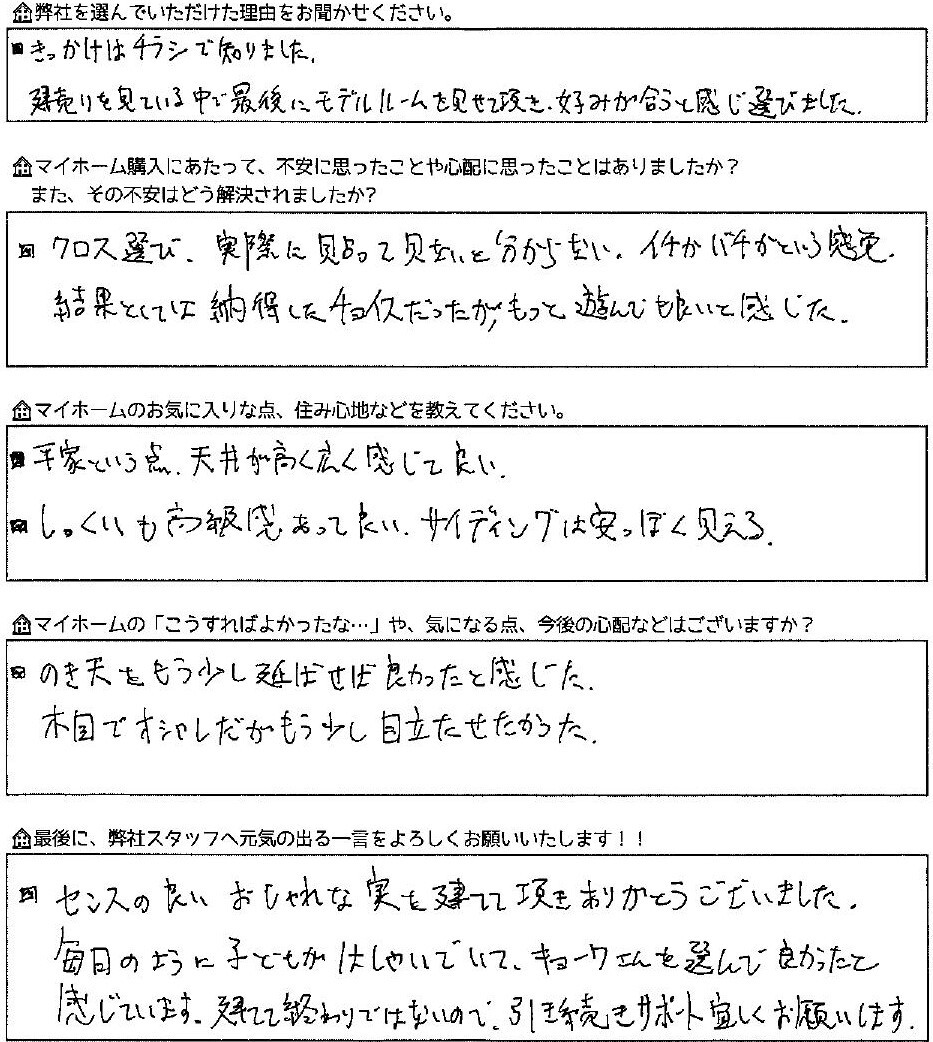 弊社を選んでいただけた理由をお聞かせください。
きっかけはチラシで知りました。
建売りを見ている中で最後にモデルルームを見せて頂き、好みが合うと感じ選びました。
マイホーム購入にあたって、不安に思ったことや心配に思ったことはありましたか？
また、その不安はどう解決されましたか?
クロス選び、実際に貼って見ないと分からない。イチかバチかという感覚。
結果としては納得したチョイスだったが、もっと遊んでも良いと感じた。
マイホームのお気に入りな点、住み心地などを教えてください。
平家という点、天井が高く広く感じて良い。
しっくいも高級感あって良い、サイディングは安っぽく見える。
マイホームの「こうすればよかったな…」や、気になる点、今後の心配などはございますか？
のき天をもう少し延ばせば良かったと感じた。
木目でオシャレだがもう少し目立たせたかった。
最後に、弊社スタッフへ元気の出る一言をよろしくお願いいたします！！
センスの良いおしゃれな実を建てて頂きありがとうございました。
毎日のように子どもがはしゃいでいて、キョーワさんを選んで良かったと
感じています。建てて終わりではないので、引き続きサポート宜しくお願いします。